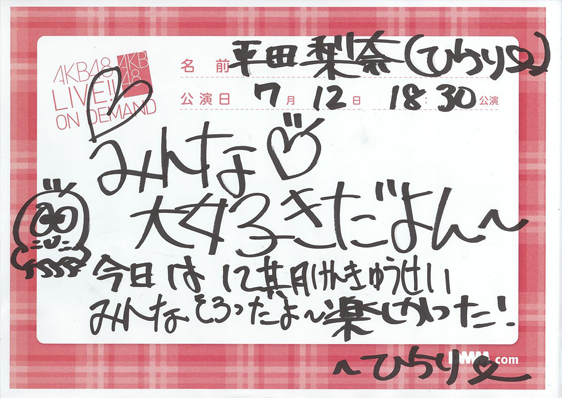 AKB48
LIVE!!
ON DEMAND
AKB
48
名前 平田梨奈(ひらり♡)
公演日 7月12日 18:30公演
みんな♡
大好きだよん〜
今日は12期けんきゅうせい
みんなそろったよ〜楽しかった!
〜ひらり♡
DMM.com